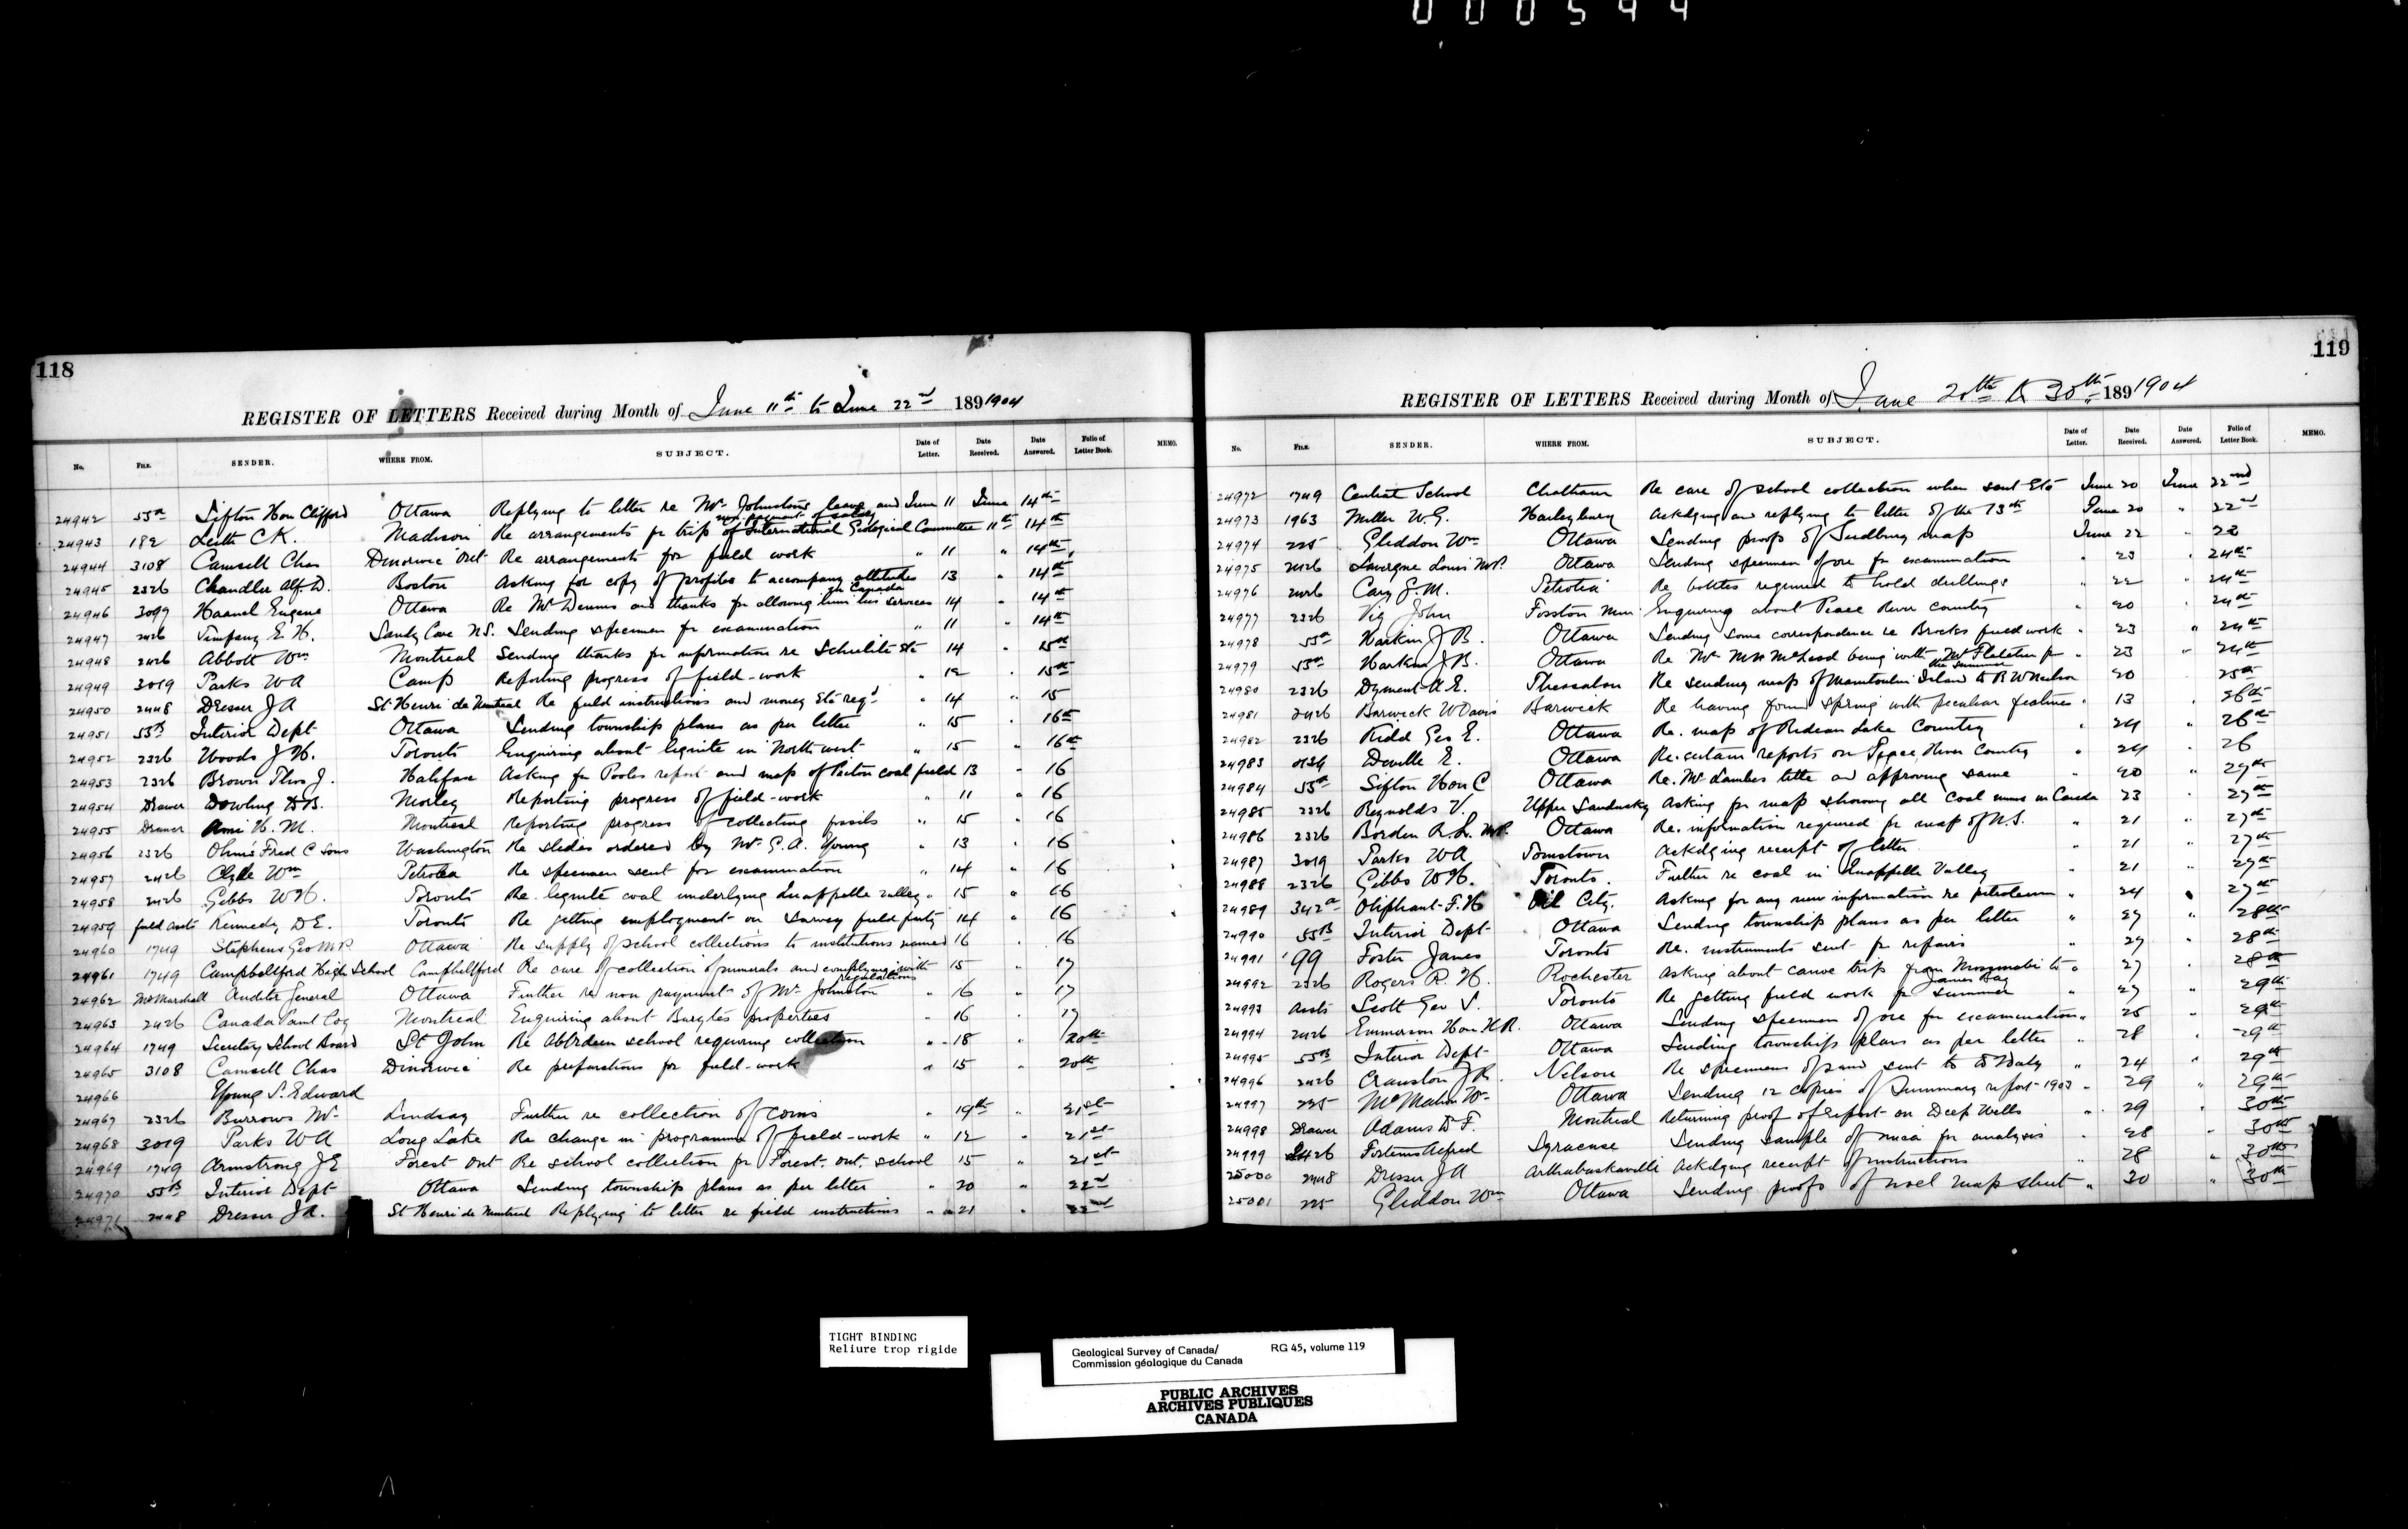 000544
118
REGISTER OF LETTERS Received during Month of June 11th to June 22nd 1891904
No. FILE. SENDER. WHERE FROM. SUBJECT. Date of Letter. Date Received. Date Answered. Folio of Letter Book. MEMO.
24942 55a Sifton Hon Clifford Ottawa Replying to letter re Mr Johnstons leave and non-payment of salary June 11 June 14th
24943 182 Leith C K. Madison Re arrangements for trip of International Geological Committee 11th 14th
24944 3108 Camsell Chas Dinorwic Ont Re arrangements for field work " 11 " 14th
24945 2326 Chandler Alf. D. Boston Asking for copy of profiles to accompany altitudes in Canada 13 " 14th
24946 3097 Haanel Eugene Ottawa Re Mr Dennis and thanks for allowing him his services 14 " 14th
24947 2426 Vimpany E H. Sandy Cove N.S. Sending specimen for examination " 11 " 14th
24948 2426 Abbott Wm Montreal Sending thanks for information re Scheelite etc 14 " 15th
24949 3019 Parks W A Camp Reporting progress of field-work " 12 " 15th
24950 2448 Dresser J A St Henri de Montreal Re field instructions and money etc reqd " 14 " 15
24951 55B Interior Dept Ottawa Sending township plans as per letter " 15 " 16th
24952 2326 Woods J H. Toronto Enquiring about lignite in North west " 15 " 16th
24953 2326 Brown Thos J. Halifax Asking for Pooles report and map of Pictou coal field 13 " 16
24954 Drawer Dowling D.B. Morley Reporting progress of field-work " 11 " 16
24955 Drawer Ami H. M. Montreal Reporting progress of collecting fossils " 15 " 16
24956 2326 Ohm's Fred C Sons Washington Re slides ordered by Mr G. A. Young " 13 " 16
24957 2426 Clyde Wm Petrolea Re specimen sent for examination " 14 " 16
24958 2426 Gibbs W H. Toronto Re lignite coal underlying Quappelle valley " 15 " 16
24959 field assts Kennedy D E. Toronto Re getting employment on survey field party 14 " 16
24960 1749 Stephens Geo M.P. Ottawa Re supply of school collections to institutions named 16 " 16
24961 1749 Campbellford High School Campbellford Re care of collection of minerals and complying with regulations 15 " 17
24962 McMarshall Auditor General Ottawa Further re non payment of Mr Johnston " 16 " 17
24963 2426 Canada Paint Coy Montreal Enquiring about Barytes properties " 16 " 17
24964 1749 Secretary School Board St John Re Abbrdeen school requiring collection " 18 " 20th
24965 3108 Camsell Chas Dinorwic Re preparations for field-work " 15 " 20th
24966 Young S. Edward
24967 2326 Burrows Mr Lindsay Further re collection of coins " 19th " 21st
24968 3019 Parks W A Long Lake Re change in programme of field-work " 12 " 21st
24969 1749 Armstrong J E Forest Ont Re school collection for Forest. Ont. school 15 " 21st
24970 55B Interior Dept Ottawa Sending township plans as per letter " 20 " 22nd
24971 2448 Dresser J A. St Henri de Montreal Replying to letter re field instructions " 21 " 22nd
119
REGISTER OF LETTERS Received during Month of June 20th to 30th 1891904
No. FILE. SENDER. WHERE FROM. SUBJECT. Date of Letter. Date Received. Date Answered. Folio of Letter Book. MEMO.
24972 1749 Central School Chatham Re care of school collection when sent etc June 20 June 22nd
24973 1963 Miller W. G. Haileybury Ackdging and replying to letter of the 13th June 20 " 22nd
24974 225 Gliddon Wm Ottawa Sending proofs of Sudbury map June 22 " 23
24975 2426 Lavergne Louis M.P. Ottawa Sending specimen of ore for examination " 23 " 24th
24976 2426 Cary G. M. Petrolia Re bottles required to hold drillings " 22 " 24th
24977 2326 Vig John Fosston Minn Enquiring about Peace River Country " 20 " 24th
24978 55a Harkin J B. Ottawa Sending some correspondence re Brocks field work " 23 " 24th
24979 55a Harkin J B. Ottawa Re Mr M H McLeod being with Mr Fletcher for the summer " 23 " 24th
24980 2326 Dyment A E. Thessalon Re sending map of Manitoulin Island to R W Nelson 20 25th
24981 2426 Barwick W Davis Barwick Re having found spring with peculiar features " 13 " 26th
24982 2326 Kidd Geo E. Ottawa Re. map of Rideau Lake Country " 24 " 26th
24983 0134 Deville E. Ottawa Re. certain reports on Peace River Country " 24 " 26
24984 55a Sifton Hon C Ottawa Re. Mr Lambes title and approving same " 20 " 27th
24985 2326 Reynolds V. Upper Sandusky Asking for map showing all coal mines in Canada 23 " 27th
24986 2326 Borden R. L. M.P. Ottawa Re. information required for map of N.S. " 21 " 27th
24987 3019 Parks W A Tomstown Ackdging receipt of letter " 21 " 27th
24988 2326 Gibbs W H. Toronto. Further re coal in Quappelle Valley " 21 " 27th
24989 342a Oliphant F. H Oil City. Asking for any new information re petroleum " 24 " 27th
24990 55B Interior Dept Ottawa Sending township plans as per letter " 27 " 28th
24991 99 Foster James Toronto Re. instruments sent for repairs " 27 " 28th
24992 2326 Rogers R. H. Rochester Asking about canoe trip from Missinabi to James Bay " 27 " 28th
24993 Assts Scott Geo S. Toronto Re getting field work for summer " 27 " 29th
24994 2426 Emmerson Hon H R. Ottawa Sending specimen of ore for examination " 25 " 29th
24995 55B Interior Dept Ottawa Sending township plans as per letter " 28 " 29th
24996 2426 Cranston J R. Nelson Re specimens of sand sent to D Daly " 24 " 29th
24997 225 McMahon Wm Ottawa Sending 12 copies of Summary report 1903 " 29 " 29th
24998 Drawer Adams D F. Montreal Returning proof of report on Deep Wells " 29 " 30th
24999 2426 Fortems Alfred Syracuse Sending sample of mica for analysis " 28 30th
25000 2448 Dresser J A Arthabaskaville Ackdging receipt of instructions " 28 " 30th
25001 225 Gliddon Wm Ottawa Sending proofs of Noel map sheet " 30 " 30th
TIGHT BINDING
Reliure trop rigide
Geological Survey of Canada/ RG 45, volume 119
Commission géologique du Canada
PUBLIC ARCHIVES
ARCHIVES PUBLIQUES
CANADA